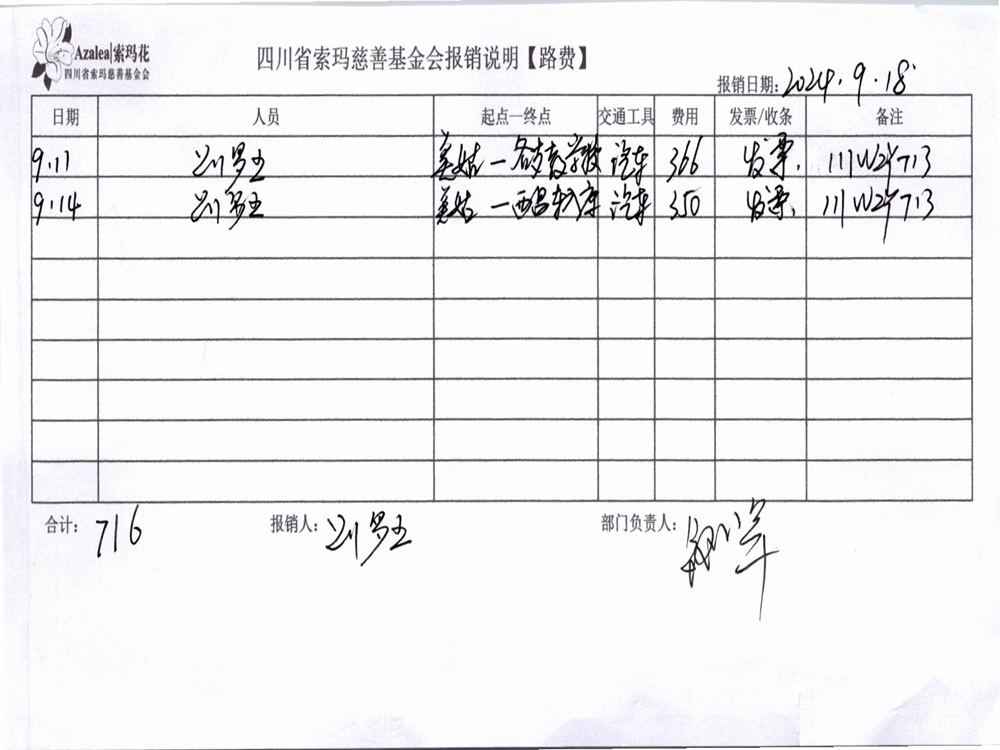 Azalea|索玛花
四川省索玛慈善基金会
四川省索玛慈善基金会报销说明【路费】
报销日期：2024.9.18
日期 人员 起点—终点 交通工具 费用 发票/收条 备注
9.11 美姑—各支教学校 汽车 366 发票. 川W2Y713
9.14 美姑—西昌 汽车 350 发票. 川W2Y713
合计：716 报销人： 部门负责人：